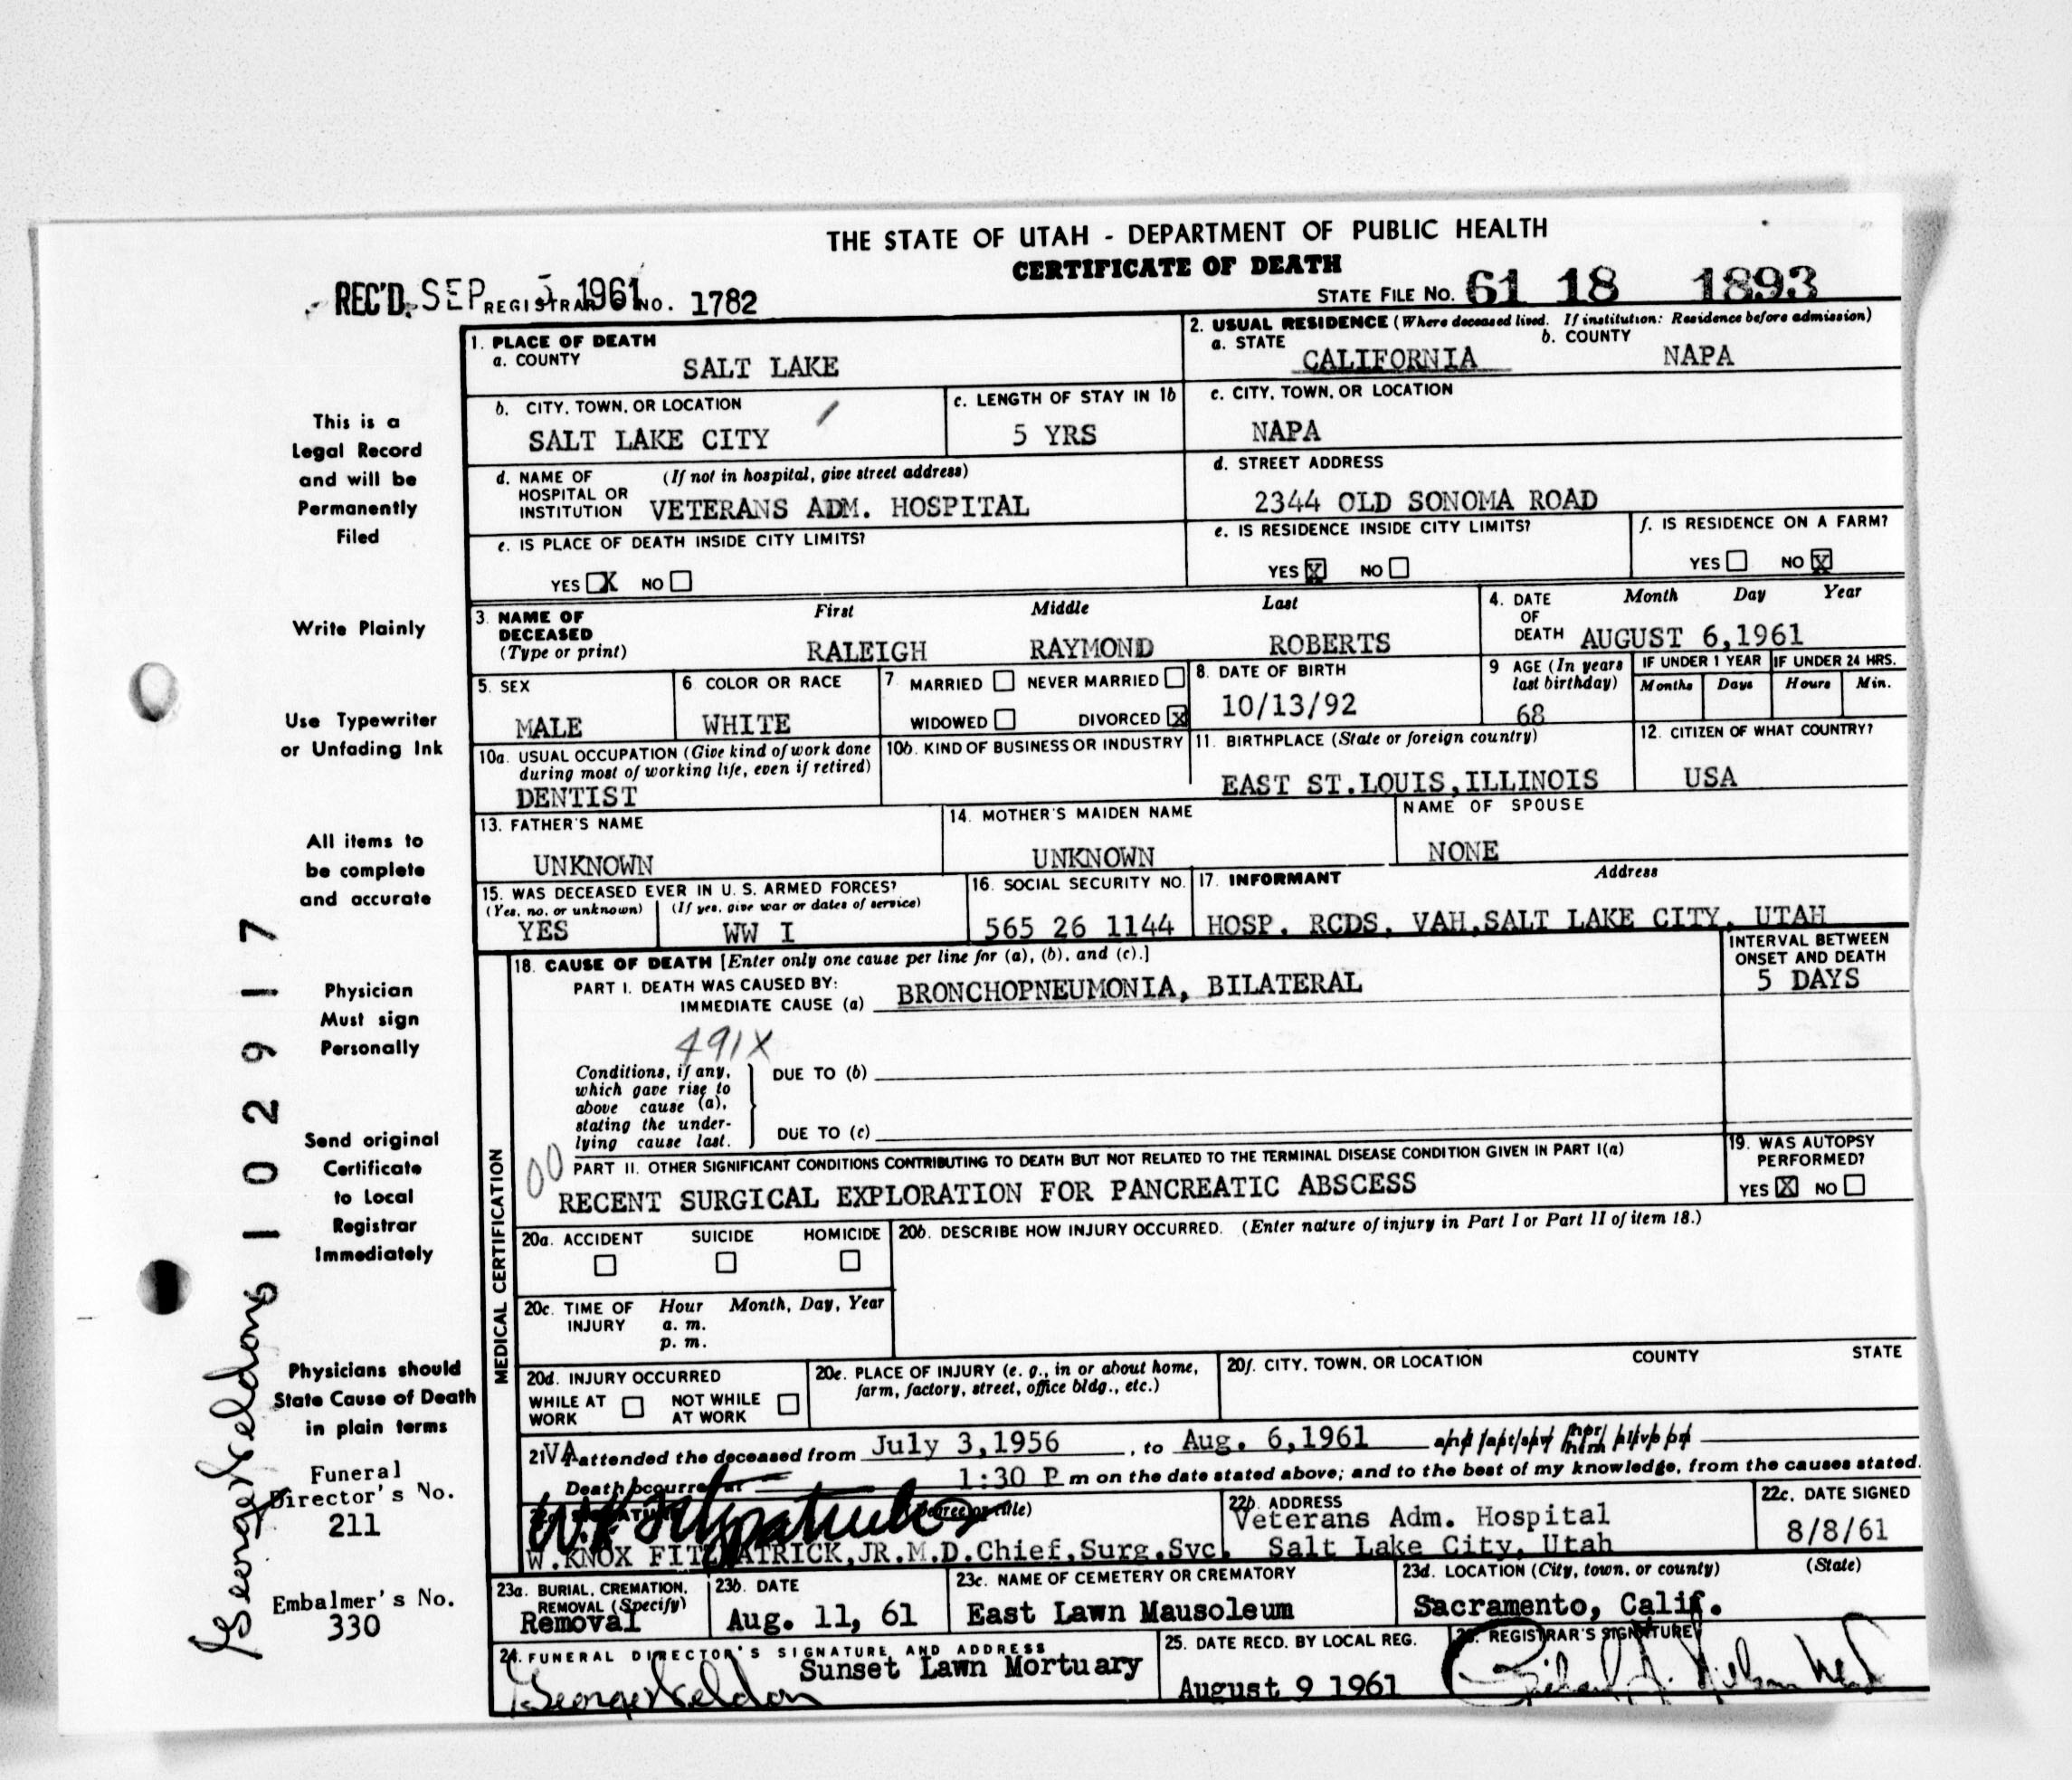 THE STATE OF UTAH - DEPARTMENT OF PUBLIC HEALTH
CERTIFICATE OF DEATH
REC'D. SEP 5 1961 REGISTRAR'S NO. 1782
STATE FILE NO. 61 18 1893
1. PLACE OF DEATH
a. COUNTY SALT LAKE
2. USUAL RESIDENCE (Where deceased lived. If institution: Residence before admission)
a. STATE CALIFORNIA b. COUNTY NAPA
b. CITY, TOWN, OR LOCATION SALT LAKE CITY
c. LENGTH OF STAY IN 1b 5 YRS
c. CITY, TOWN, OR LOCATION NAPA
d. NAME OF HOSPITAL OR INSTITUTION (If not in hospital, give street address) VETERANS ADM. HOSPITAL
d. STREET ADDRESS 2344 OLD SONOMA ROAD
e. IS PLACE OF DEATH INSIDE CITY LIMITS?
YES X NO
e. IS RESIDENCE INSIDE CITY LIMITS?
YES X NO
f. IS RESIDENCE ON A FARM?
YES NO X
3. NAME OF DECEASED (Type or print)
First Middle Last
RALEIGH RAYMOND ROBERTS
4. DATE OF DEATH Month Day Year
AUGUST 6,1961
5. SEX MALE
6. COLOR OR RACE WHITE
7. MARRIED NEVER MARRIED
WIDOWED DIVORCED X
8. DATE OF BIRTH 10/13/92
9 AGE (In years last birthday) 68
IF UNDER 1 YEAR Months Days
IF UNDER 24 HRS. Hours Min.
10a. USUAL OCCUPATION (Give kind of work done during most of working life, even if retired)
DENTIST
10b. KIND OF BUSINESS OR INDUSTRY
11. BIRTHPLACE (State or foreign country)
EAST ST.LOUIS,ILLINOIS
12. CITIZEN OF WHAT COUNTRY?
USA
13. FATHER'S NAME
UNKNOWN
14. MOTHER'S MAIDEN NAME
UNKNOWN
NAME OF SPOUSE
NONE
15. WAS DECEASED EVER IN U. S. ARMED FORCES?
(Yes, no, or unknown) (If yes, give war or dates of service)
YES WW I
16. SOCIAL SECURITY NO.
565 26 1144
17. INFORMANT Address
HOSP. RCDS. VAH,SALT LAKE CITY, UTAH
MEDICAL CERTIFICATION
18. CAUSE OF DEATH [Enter only one cause per line for (a), (b), and (c).]
PART I. DEATH WAS CAUSED BY:
IMMEDIATE CAUSE (a) BRONCHOPNEUMONIA, BILATERAL
INTERVAL BETWEEN ONSET AND DEATH
5 DAYS
491X
Conditions, if any, which gave rise to above cause (a), stating the underlying cause last.
DUE TO (b)
DUE TO (c)
00
PART II. OTHER SIGNIFICANT CONDITIONS CONTRIBUTING TO DEATH BUT NOT RELATED TO THE TERMINAL DISEASE CONDITION GIVEN IN PART I(a)
RECENT SURGICAL EXPLORATION FOR PANCREATIC ABSCESS
19. WAS AUTOPSY PERFORMED?
YES X NO
20a. ACCIDENT SUICIDE HOMICIDE
20b. DESCRIBE HOW INJURY OCCURRED. (Enter nature of injury in Part I or Part II of item 18.)
20c. TIME OF INJURY Hour Month, Day, Year
a. m.
p. m.
20d. INJURY OCCURRED
WHILE AT WORK NOT WHILE AT WORK
20e. PLACE OF INJURY (e. g., in or about home, farm, factory, street, office bldg., etc.)
20f. CITY, TOWN, OR LOCATION COUNTY STATE
21 VA attended the deceased from July 3,1956, to Aug. 6,1961 and last saw her him alive on
Death occurred at 1:30 P m on the date stated above; and to the best of my knowledge, from the causes stated.
W K Fitzpatrick Jr
(Degree or title)
W.KNOX FITZPATRICK,JR.M.D.Chief,Surg.Svc.
22b. ADDRESS
Veterans Adm. Hospital
Salt Lake City, Utah
22c. DATE SIGNED
8/8/61
23a. BURIAL, CREMATION, REMOVAL (Specify)
Removal
23b. DATE
Aug. 11, 61
23c. NAME OF CEMETERY OR CREMATORY
East Lawn Mausoleum
23d. LOCATION (City, town, or county) (State)
Sacramento, Calif.
24. FUNERAL DIRECTOR'S SIGNATURE AND ADDRESS
Sunset Lawn Mortuary
25. DATE RECD. BY LOCAL REG.
August 9 1961
26. REGISTRAR'S SIGNATURE
This is a
Legal Record
and will be
Permanently
Filed
Write Plainly
Use Typewriter
or Unfading Ink
All items to
be complete
and accurate
Physician
Must sign
Personally
Send original
Certificate
to Local
Registrar
Immediately
Physicians should
State Cause of Death
in plain terms
Funeral
Director's No.
211
Embalmer's No.
330
6102917